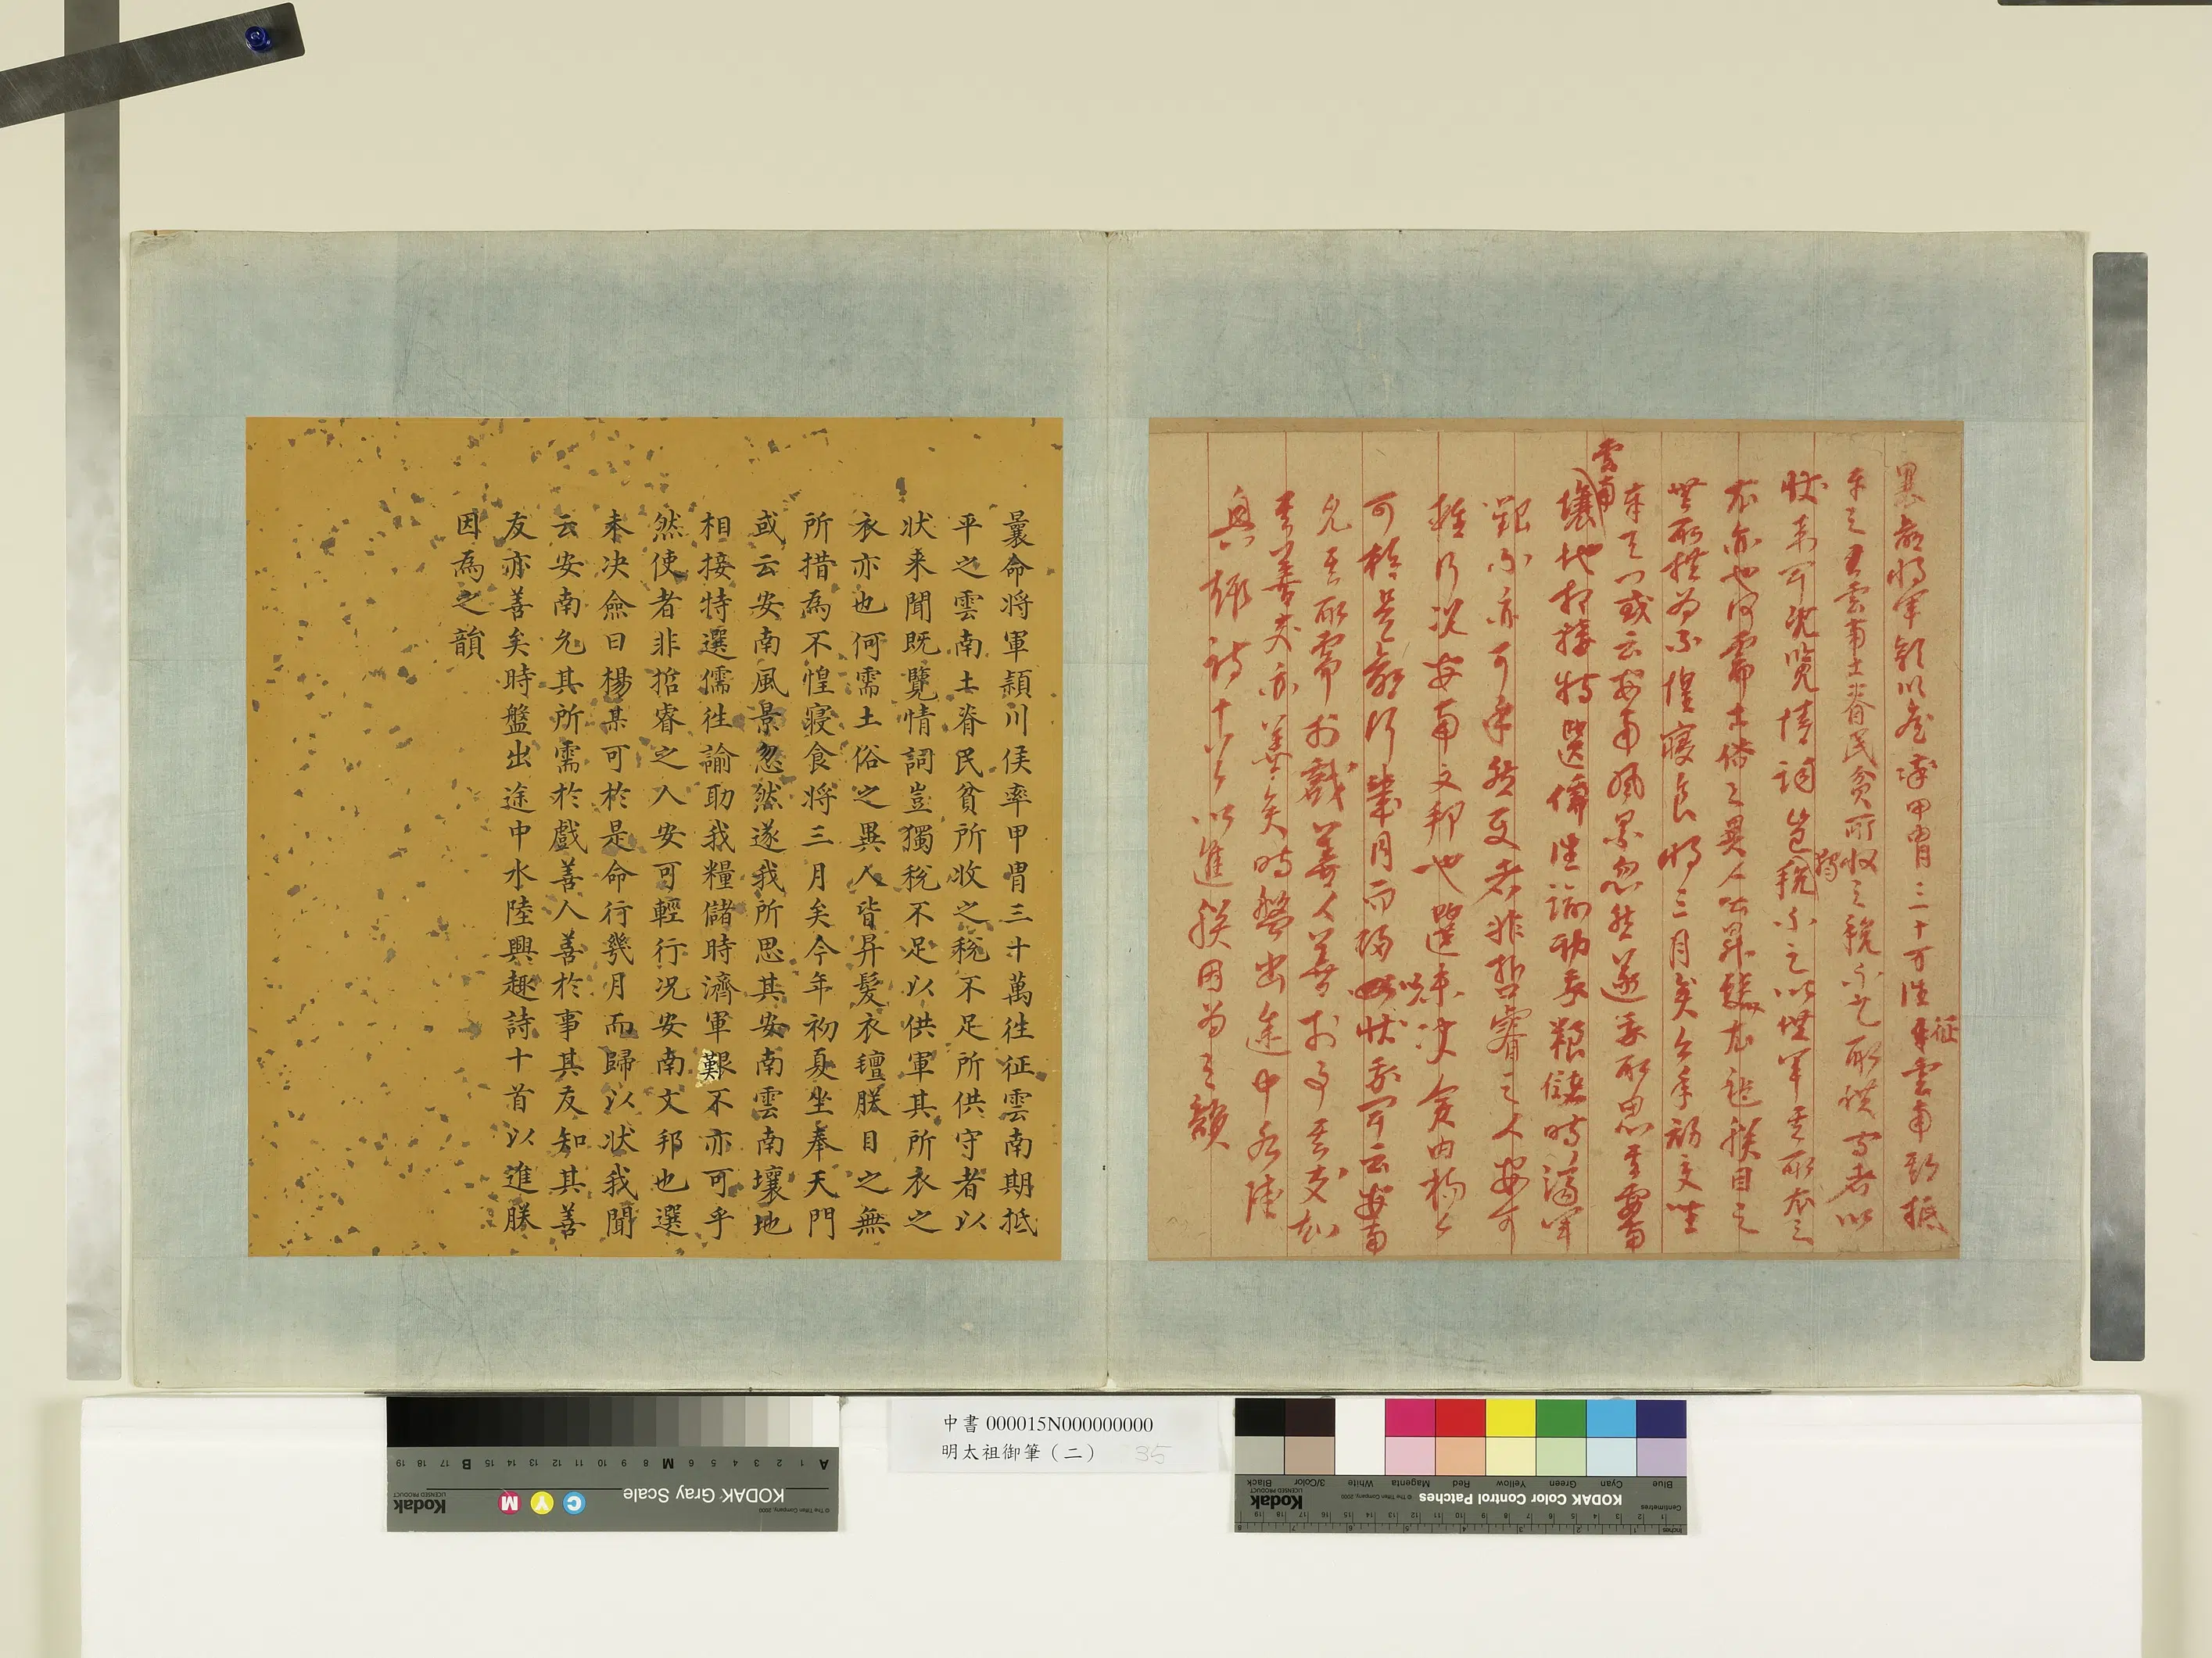 曩命将軍領川侯率甲冑三十万往征雲南期抵
平之其雲南土瘠民貧所收之稅不足所供守者以
狀来聞既覽情詞豈獨稅不足以供軍其所衣之
衣亦也何需土俗之異人皆昇髮衣氊朕目之
無所措為不惶寢食将三月矣今年初夏坐
奉天門或云安南風景忽然遂我所思其安南
雲南壤地相接特選儒往諭助我糧儲時濟軍
艱不亦可乎然使者非哲睿之人安可
輕行況安南文邦也選未决僉曰楊某
可於是命行幾月而歸以狀我聞云安南
允其所需於戲善人善於事其友知
其善友亦善矣時盤出途中水陸
興趣詩十首以進朕因為之韻
曩命将軍頴川侯率甲冑三十萬往征雲南期抵
平之雲南土瘠民貧所收之稅不足所供守者以
狀来聞既覽情詞豈獨稅不足以供軍其所衣之
衣亦也何需土俗之異人皆昇髮衣氊朕目之無
所措為不惶寢食将三月矣今年初夏坐奉天門
或云安南風景忽然遂我所思其安南雲南壤地
相接特選儒往諭助我糧儲時濟軍艱不亦可乎
然使者非哲睿之人安可輕行况安南文邦也選
未决僉曰楊某可於是命行幾月而歸以狀我聞
云安南允其所需於戲善人善於事其友知其善
友亦善矣時盤出途中水陸興趣詩十首以進朕
因為之韻
中書 000015N000000000
明太祖御筆（二） 35
A 1 2 3 4 5 6 M 8 9 10 11 12 13 14 15 B 17 18 19
KODAK Gray Scale
C Y M
Kodak
LICENSED PRODUCT
© The Tiffen Company, 2000
Blue Cyan Green Yellow Red Magenta White 3/Color Black
KODAK Color Control Patches
© The Tiffen Company, 2000
Kodak
LICENSED PRODUCT
Centimetres
Inches